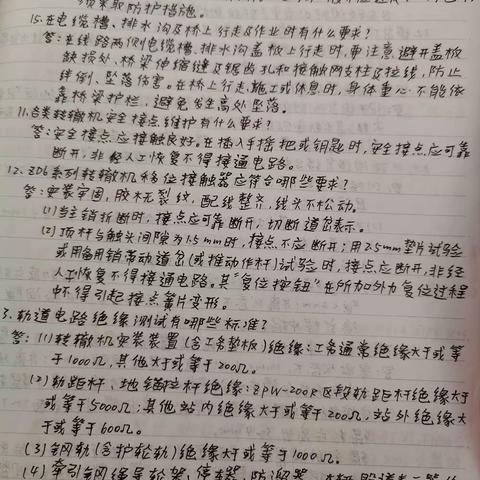 须采取防护措施。
15.在电缆槽、排水沟及桥上行走及作业时有什么要求?
答:在线路两侧电缆槽、排水沟盖板上行走时,要注意避开盖板
缺损处、桥梁伸缩缝及锯齿孔和接触网支柱及拉线,防止
绊倒、坠落伤害。在桥上行走、施工或休息时,身体重心不能依
靠桥梁护栏,避免发生高处坠落。
11.各类转辙机安全接点维护有什么要求?
答:安全接点应接触良好。在插入手摇把或钥匙时,安全接点应可靠
断开,非经人工恢复不得接通电路。
12.ZD6系列转辙机移位接触器应符合哪些要求?
答:安装牢固,胶木无裂纹,配线整齐,线头不松动。
(1)当主销折断时,接点应可靠断开,切断道岔表示。
(2)顶杆与触头间隙为1.5mm时,接点不应断开;用2.5mm垫片试验
或用备用销带动道岔(或推动作杆)试验时,接点应断开,非经
人工恢复不得接通电路。其"复位按钮"在所加外力复位过程
中不得引起接点簧片变形。
3.轨道电路绝缘测试有哪些标准?
答:(1)转辙机安装装置(含工务垫板)绝缘:工务通常绝缘大于或等
于1000Ω,其他大于或等于200Ω。
(2)轨距杆、地锚拉杆绝缘:ZPW-200R区段轨距杆绝缘大于
或等于5000Ω;其他站内绝缘大于或等于200Ω,站外绝缘大
于或等于600Ω。
(3)钢轨(含护轮轨)绝缘大于或等于1000Ω。
(4)牵引钢绳导轮架、停车器、防溜器